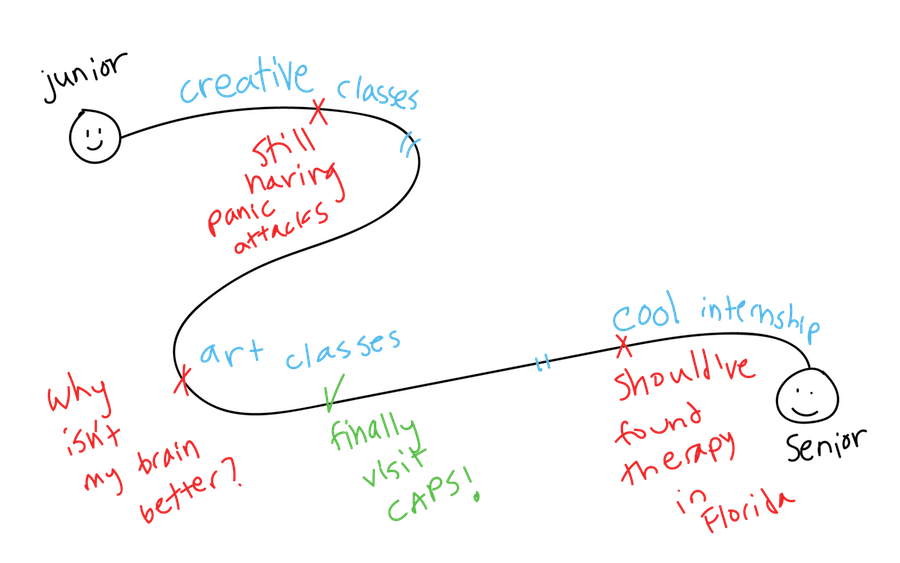 junior
creative classes
still
having
panic
attacks
art classes
why
isn't
my brain
better?
finally
visit
CAPS!
cool internship
should've
found
therapy
in
Florida
Senior